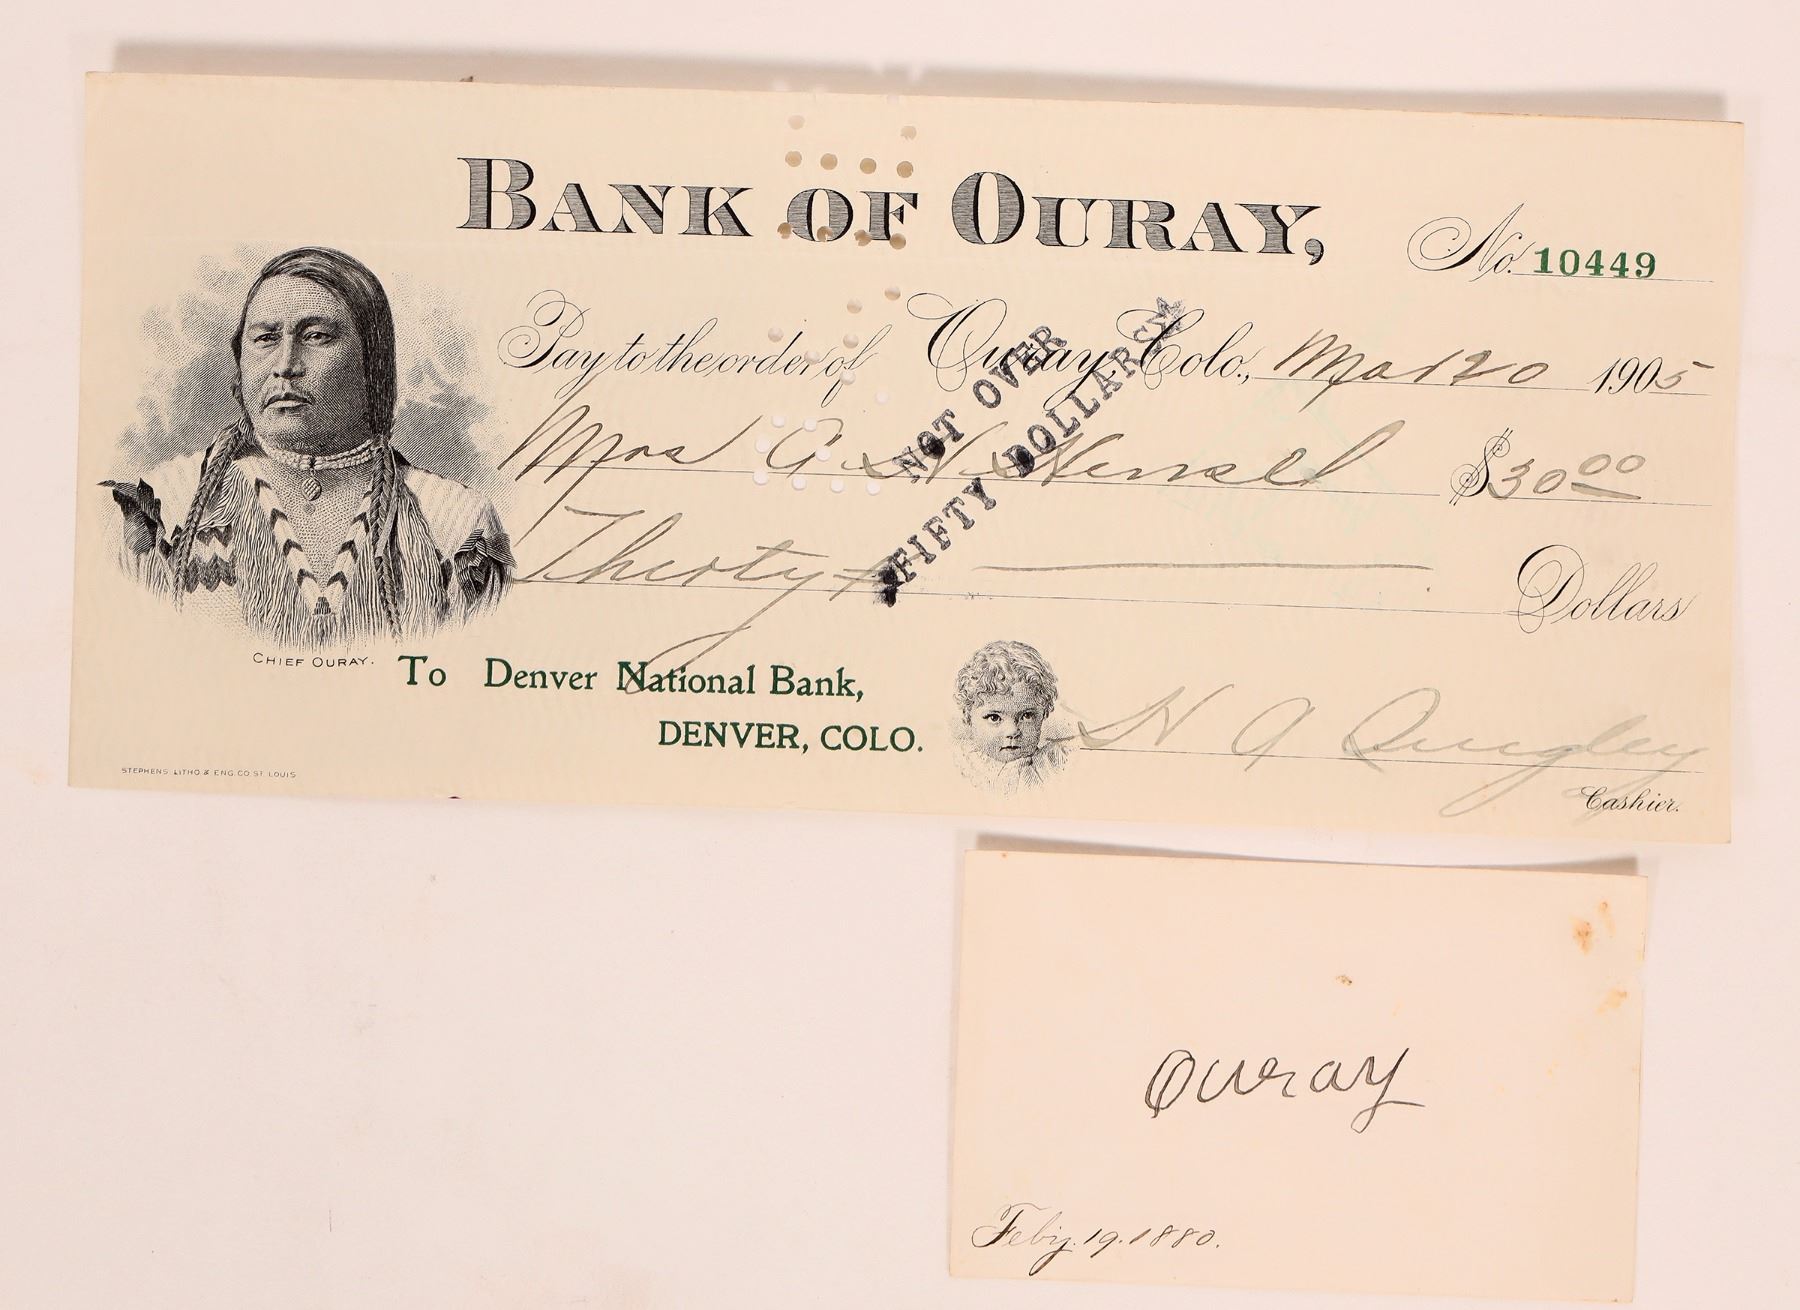 BANK OF OURAY,
No. 10449
Ouray, Colo., Mar 20 1905
Pay to the order of
Mrs C. N. $30 00
Thirty Dollars
NOT OVER
FIFTY DOLLARS
CHIEF OURAY.
To Denver National Bank,
DENVER, COLO.
H A Quigley
Cashier.
STEPHENS LITHO & ENG. CO. ST. LOUIS
Ouray
Feby. 19. 1880.